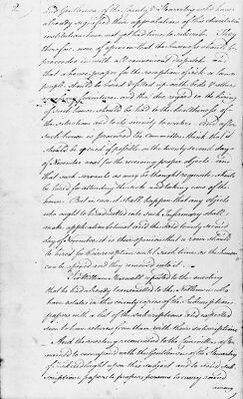 2
and Gentlemen of the County & Townships who have
already signified their approbation of this charitable
institution have not yet had time to subscribe. They
therefore were of opinion that the business should be
proceeded in with all convenient dispatch and
that a house proper for the reception of sick or lame
people should be hired & fitted up with beds & other
furniture and that regard to the hiring
of such house should be had to the healthiness of
the situation and to its vicinity to water. And after
such house is procured the Committee think that it
should be opened if possible on the twenty second day
of November next for the receiving proper objects and
that such servants as may be thought requisite should
be hired for attending the sick and taking care of the
house. But in case it shall happen that any objects
who ought to be admitted into such Infirmary shall
make application betwixt and the said twenty second
day of November it is their opinion that a room should
be hired for their reception until such time as the house
can be opened and they received into it.
William Maxwell reported to the meeting
that he had already transmitted to the Noblemen who
have estates in this county copies of the Subscription
papers with a list of the subscriptions and expected
soon to have returns from them with their subscriptions.
And the meeting recommended to the Committee
to correspond with the Gentlemen of the Stewartry
of Kirkcudbright upon this subject and to send Sub-
scription papers to proper persons to carry round
among